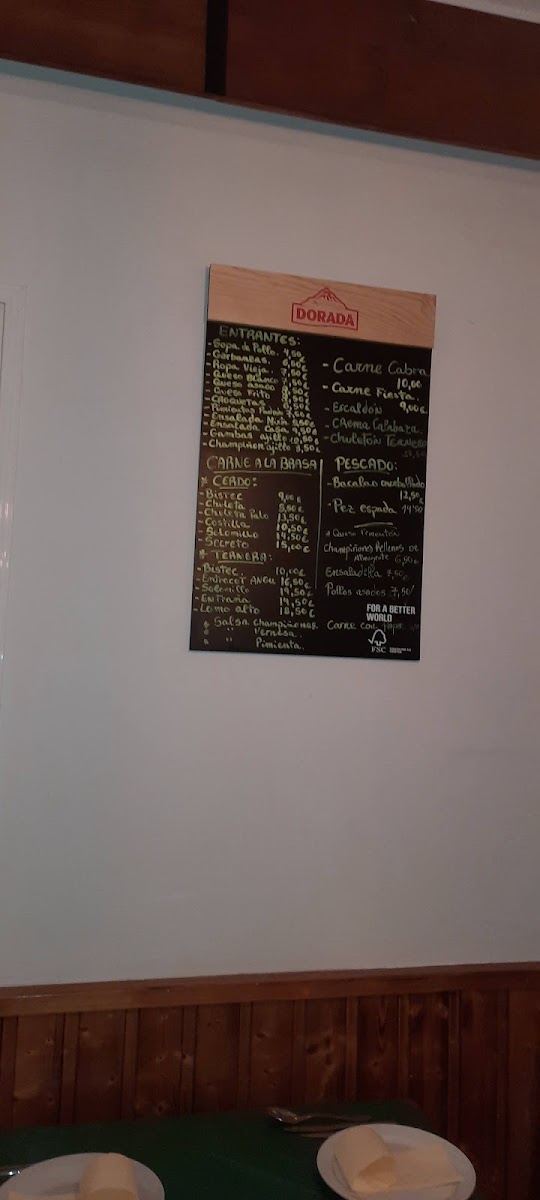 DORADA
ENTRANTES:
- Sopa de Pollo. 4,50
- Garbanzas.
- Ropa Vieja.
- Queso Blanco
- Queso asado
- Queso Frito
- CROQUETAS
- Pimientos Padrón
- Ensalada Mixta
- Ensalada Casa 9,50€
- Gambas ajillo 10,50
- Champiñon ajillo 8,50€
CARNE A LA BRASA
* CERDO:
- Bistec 9,00€
- Chuleta
- Chuleta Palo 13,50€
- Costilla 10,50€
- Solomillo 14,50€
- Secreto 15,00€
* TERNERA:
- Bistec. 10,00€
- Entrecot ANGU 16,50€
- Solomillo 19,50€
- Entraña 19,50€
- Lomo alto 18,50€
Salsa Champiñones.
" "
" Pimienta.
- Carne Cabra
10,00
- Carne Fiesta.
9,00€
- Escaldón
- CREma Calabaza.
- Chuletón TERNERA
PESCADO:
- Bacalao encebollado
12,50€
- Pez espada 14,50
* Queso Pimentón
Champiñones Rellenos DE
6,50€
Ensaladilla 7,50€
Pollos asados 7,50
FOR A BETTER
WORLD
Carne con
FSC